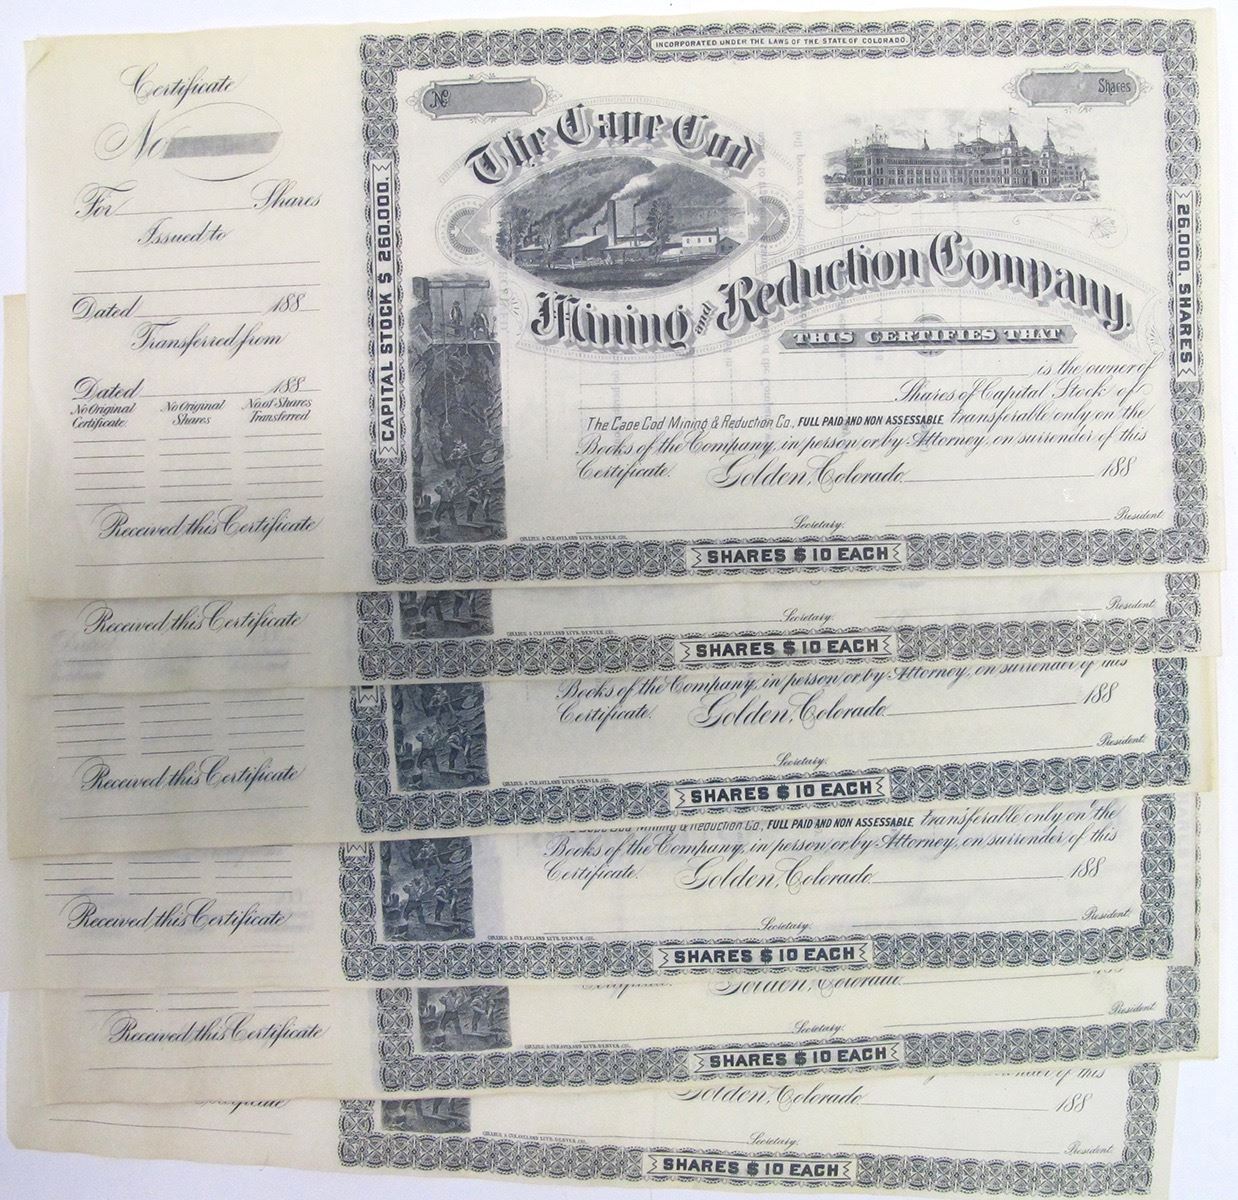 Certificate
No
For Shares
Issued to
Dated 188
Transferred from
Dated 188
No Original Certificate. No Original Shares No of Shares Transferred
Received this Certificate
INCORPORATED UNDER THE LAWS OF THE STATE OF COLORADO.
No
Shares
The Cape Cod
Mining and Reduction Company.
CAPITAL STOCK $ 260.000.
26.000. SHARES
THIS CERTIFIES THAT
is the owner of
Shares of Capital Stock of
The Cape Cod Mining & Reduction Co., FULL PAID AND NON ASSESSABLE, transferable only on the
Books of the Company, in person or by Attorney, on surrender of this
Certificate. Golden, Colorado 188
Secretary. President.
COLLIER & CLEAVELAND LITH. DENVER. COL.
SHARES $ 10 EACH
Received this Certificate
Secretary. President.
COLLIER & CLEAVELAND LITH. DENVER. COL.
SHARES $ 10 EACH
Books of the Company, in person or by Attorney, on surrender of this
Certificate. Golden, Colorado 188
Received this Certificate
Secretary. President.
COLLIER & CLEAVELAND LITH. DENVER. COL.
SHARES $ 10 EACH
Cape Cod Mining & Reduction Co., FULL PAID AND NON ASSESSABLE, transferable only on the
Books of the Company, in person or by Attorney, on surrender of this
Certificate. Golden, Colorado 188
Received this Certificate
Secretary. President.
COLLIER & CLEAVELAND LITH. DENVER. COL.
SHARES $ 10 EACH
Certificate. Golden, Colorado 188
Received this Certificate
Secretary. President.
COLLIER & CLEAVELAND LITH. DENVER. COL.
SHARES $ 10 EACH
of this
Golden, Colorado 188
Certificate
Secretary. President.
COLLIER & CLEAVELAND LITH. DENVER. COL.
SHARES $ 10 EACH